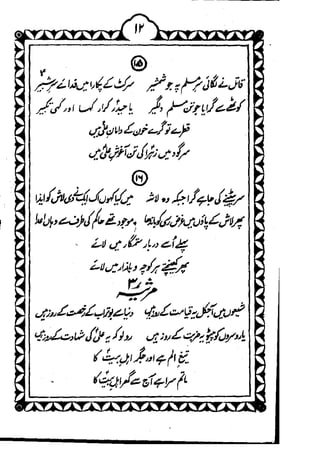 ۱۲
۱۵
قاتل نے لگائی سر مسلم پہ جو شمشیر سر کٹ کے پکارا میں فدائے سر شبیر
کوٹھے سے گرایا جو تن مسلم دلگیر یا حیدر کرار کہا اور کہی تکبیر
قطرے تو گرے خون کے دامان علی میں
سر گود میں زہرا کی تن آغوش علی میں
۱۶
کی جا سے گرا جبکہ وہ لاشہ میں کیا کہوں اک
پھر لاش کے پاؤں میں غرض رسی کو باندھا موجود تھے حاکم کی طرف سے وہاں اعدا
پہلے اُسے دربار ستمگار میں لائے
پھر کھینچتے ہر کوچہ و بازار میں لائے
مرثیہ ۳
شیعوں میں آجکل ہے قیامت کے روز ہیں دنیا سے بوتراب کے رخصت کے روز ہیں
یارو سروں کو پیٹو مصیبت کے روز ہیں رو لو کہ یہ علی کی شہادت کے روز ہیں
تیغ الم ہے اور جگر اہل بیت کا
ماتم سرا ہے آج سے گھر اہل بیت کا